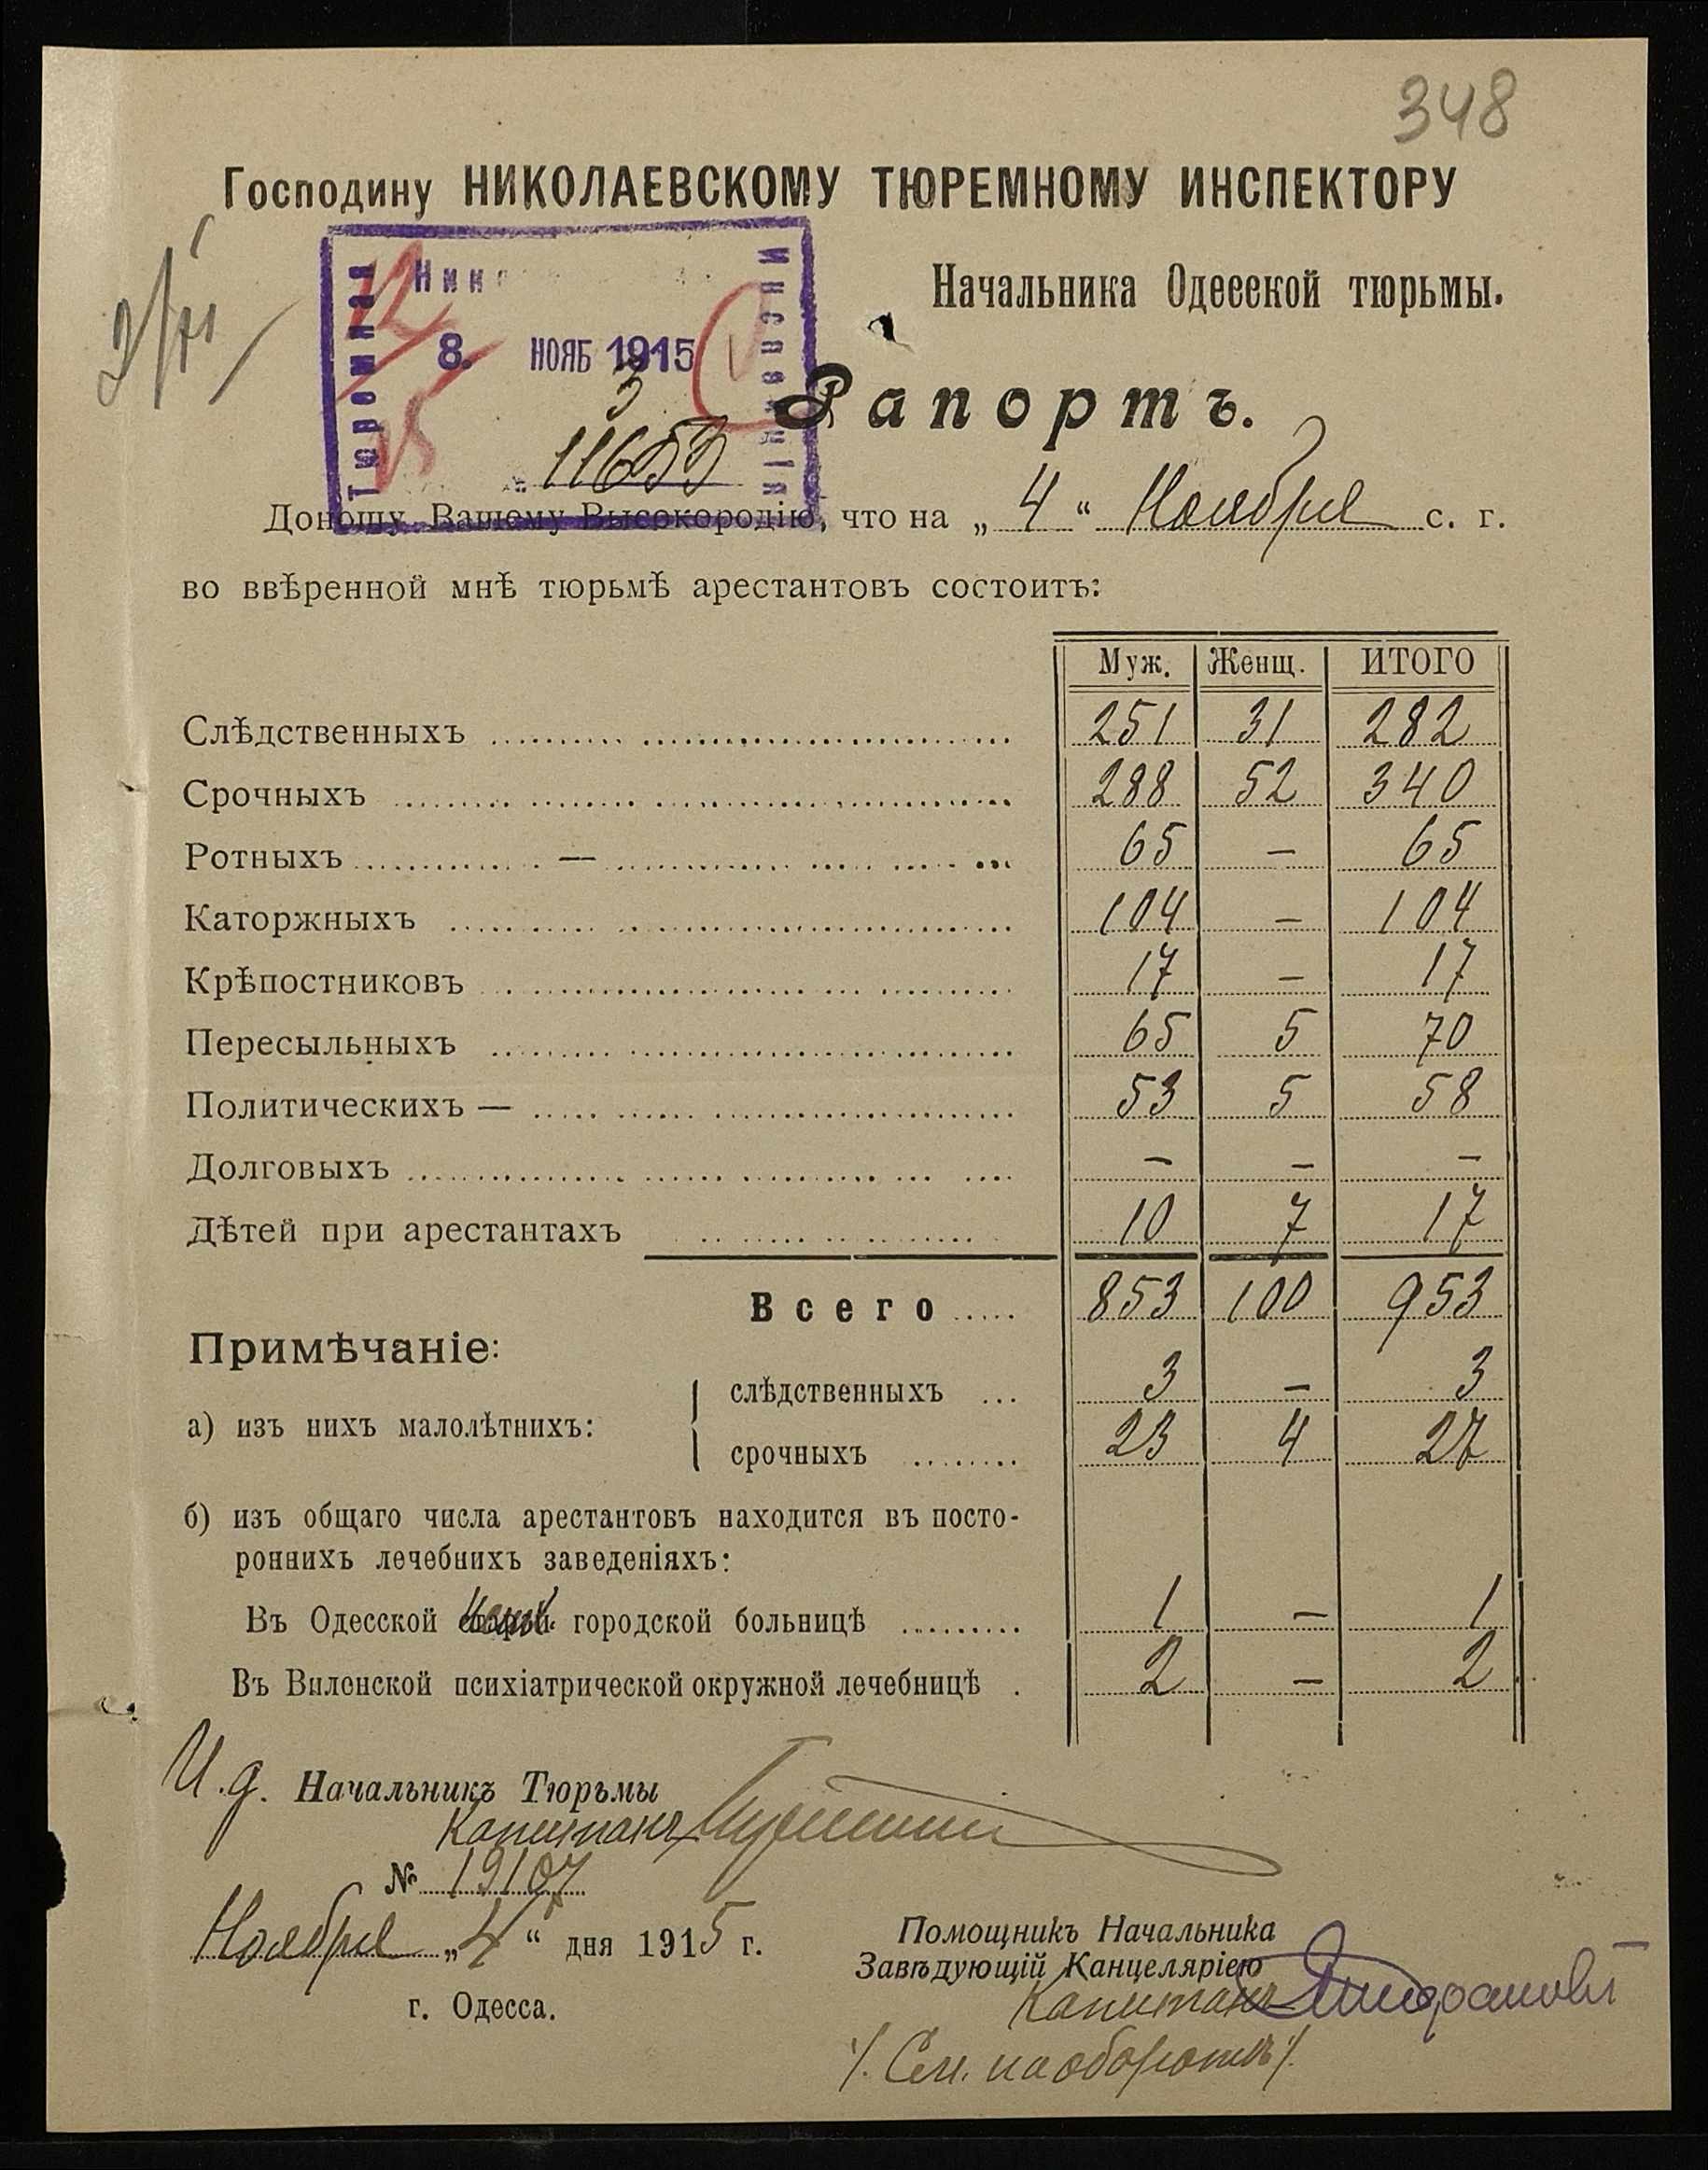 348
Господину НИКОЛАЕВСКОМУ ТЮРЕМНОМУ ИНСПЕКТОРУ
Начальника Одесской тюрьмы.
ТЮРЕМНАЯ
ИНСПЕКЦІЯ
8. НОЯБ 1915
3
11653
Рапортъ.
Доношу Вашему Высокородію, что на „ 4 “ Ноября с. г.
во ввѣренной мнѣ тюрьмѣ арестантовъ состоитъ:
Муж. Женщ. ИТОГО
Слѣдственныхъ 251 31 282
Срочныхъ 288 52 340
Ротныхъ — 65 — 65
Каторжныхъ 104 — 104
Крѣпостниковъ 17 — 17
Пересыльныхъ 65 5 70
Политическихъ — 53 5 58
Долговыхъ — — —
Дѣтей при арестантахъ 10 7 17
Всего 853 100 953
Примѣчаніе:
а) изъ нихъ малолѣтнихъ:
слѣдственныхъ 3 — 3
срочныхъ 23 4 27
б) изъ общаго числа арестантовъ находится въ посто-
роннихъ лечебнихъ заведеніяхъ:
Въ Одесской городской больницѣ 1 — 1
Въ Виленской психіатрической окружной лечебницѣ 2 — 2
И.д. Начальникъ Тюрьмы
Капитанъ
№ 19107
Ноября „ 4 “ дня 1915 г.
г. Одесса.
Помощникъ Начальника
Завѣдующій Канцеляріею
Капитанъ
/. См. на оборотѣ /.